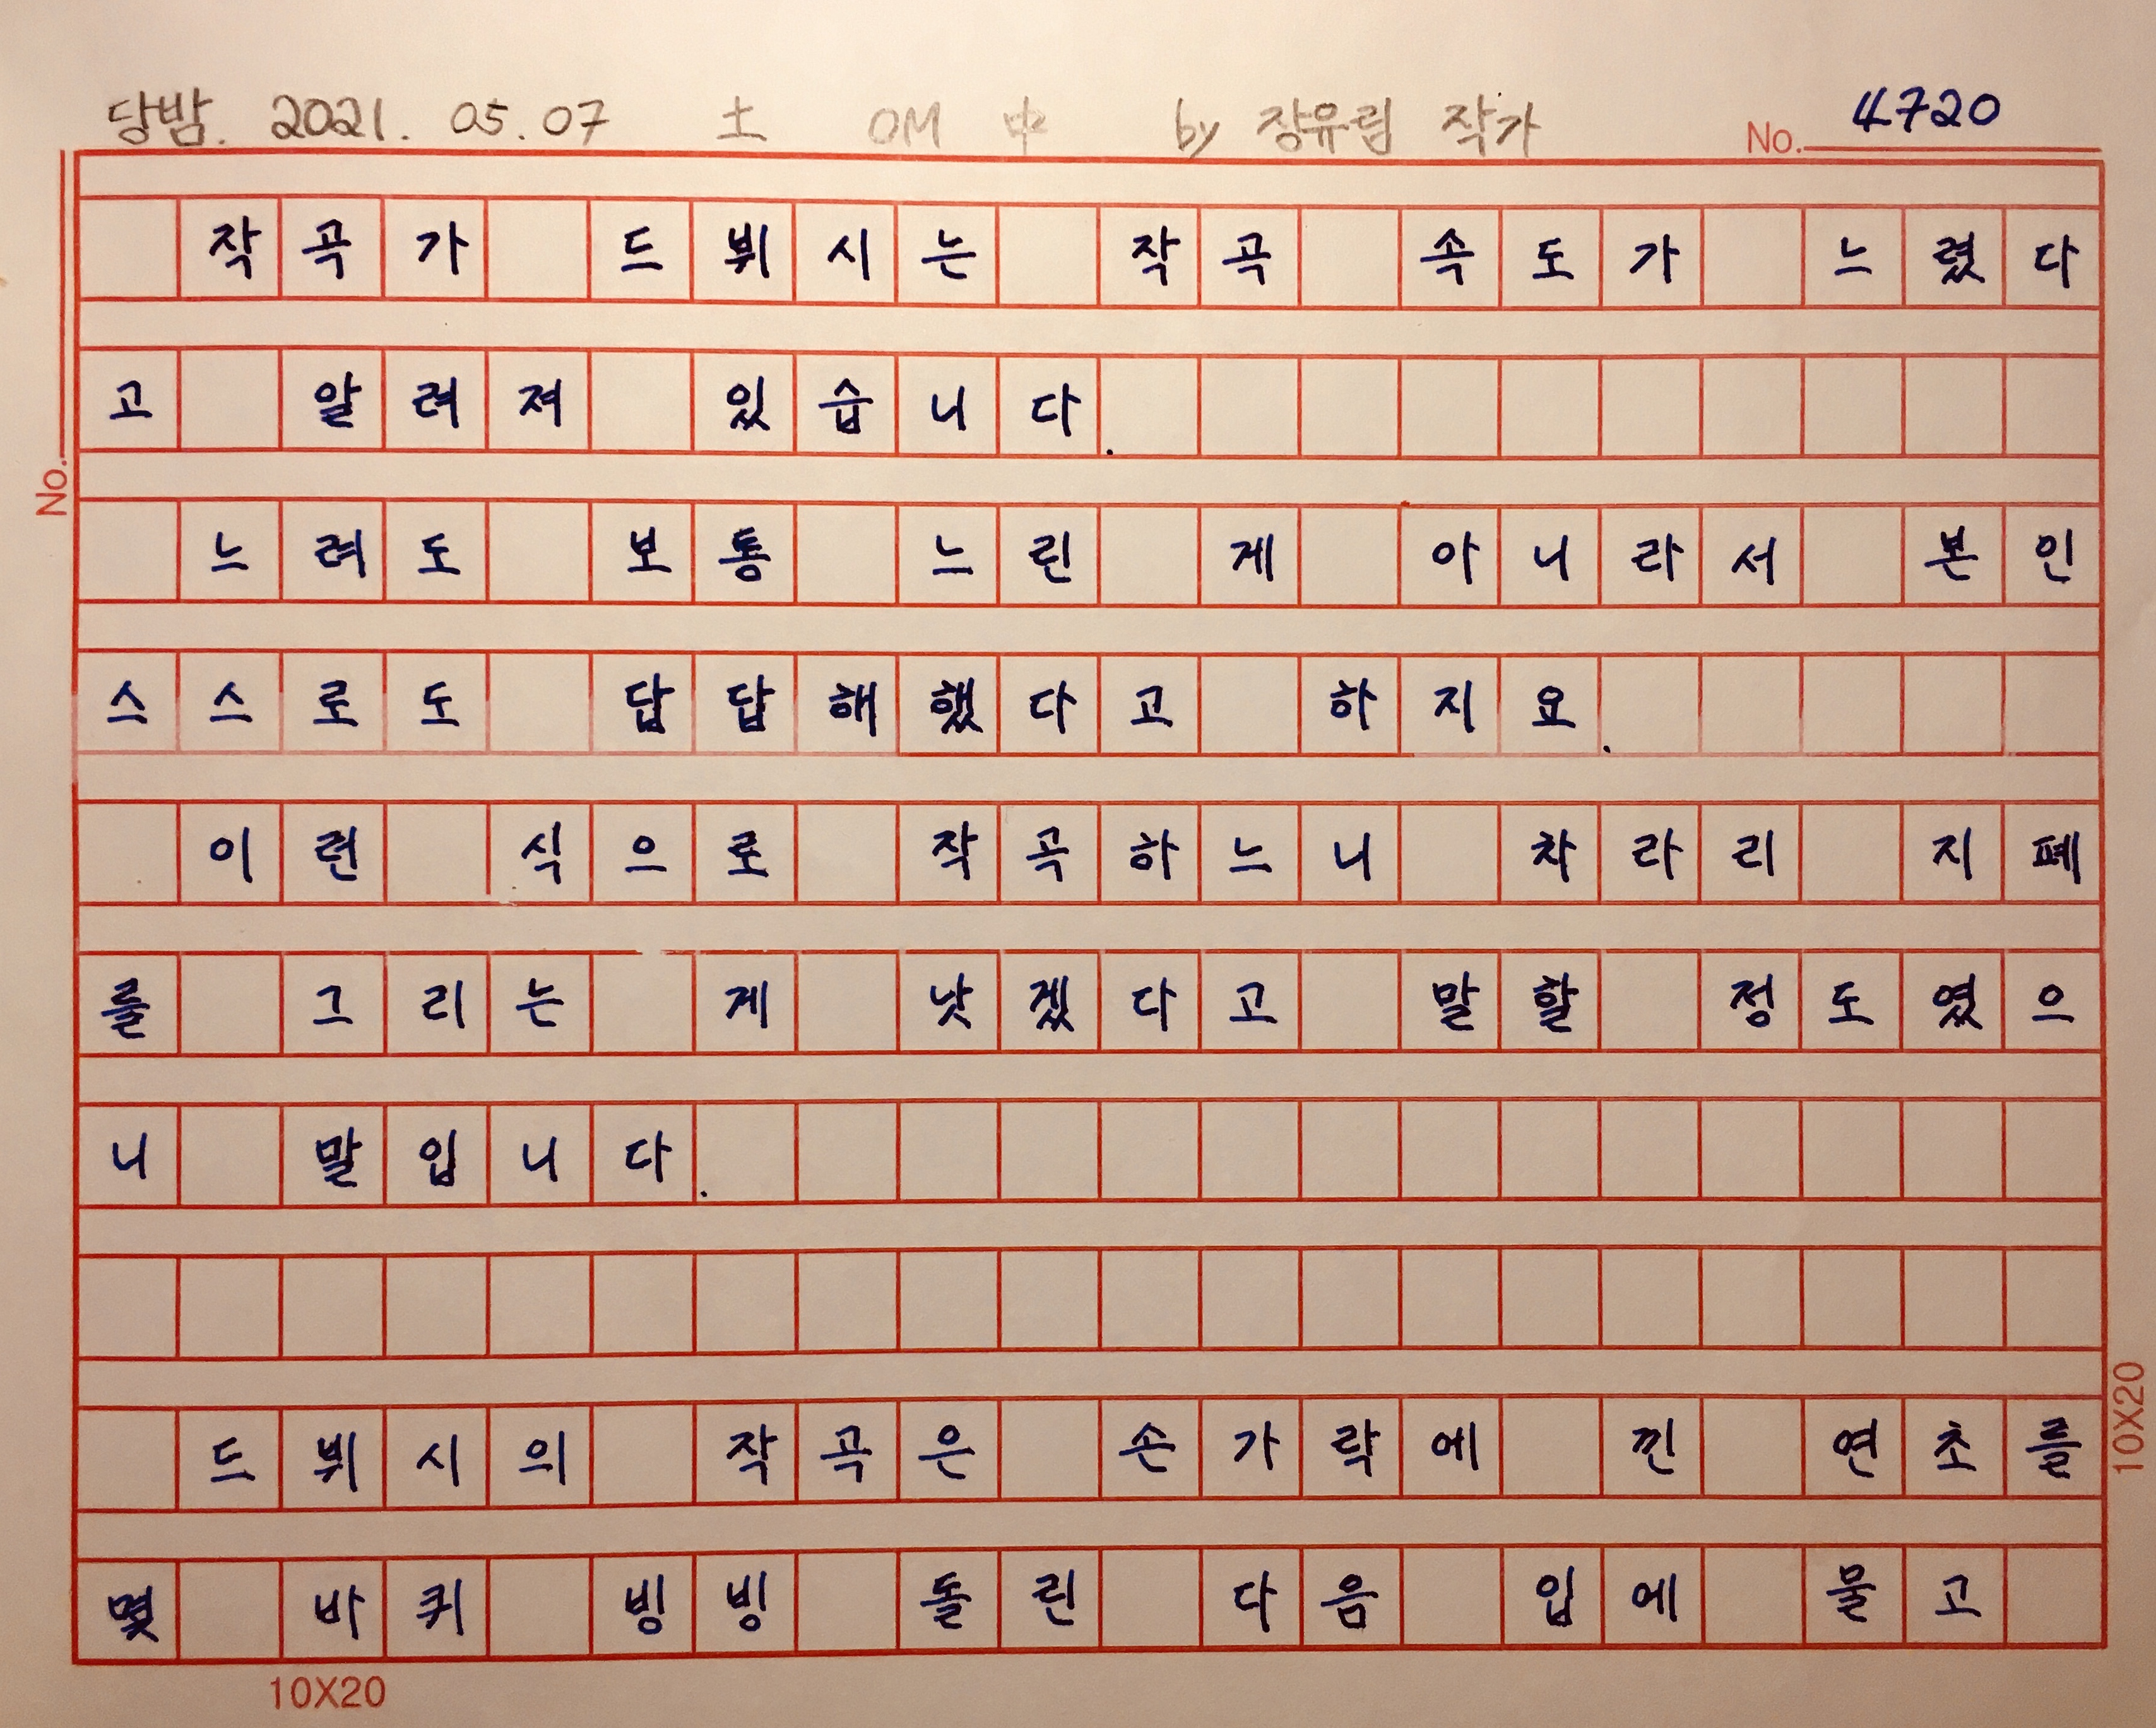 당밤. 2021. 05. 07 土 OM 中 by 장유림 작가 No. 4720
작곡가 드뷔시는 작곡 속도가 느렸다
고 알려져 있습니다.
No.
느려도 보통 느린 게 아니라서 본인
스스로도 답답해했다고 하지요.
이런 식으로 작곡하느니 차라리 지폐
를 그리는 게 낫겠다고 말할 정도였으
니 말입니다.
드뷔시의 작곡은 손가락에 낀 연초를
10X20
몇 바퀴 빙빙 돌린 다음 입에 물고
10X20